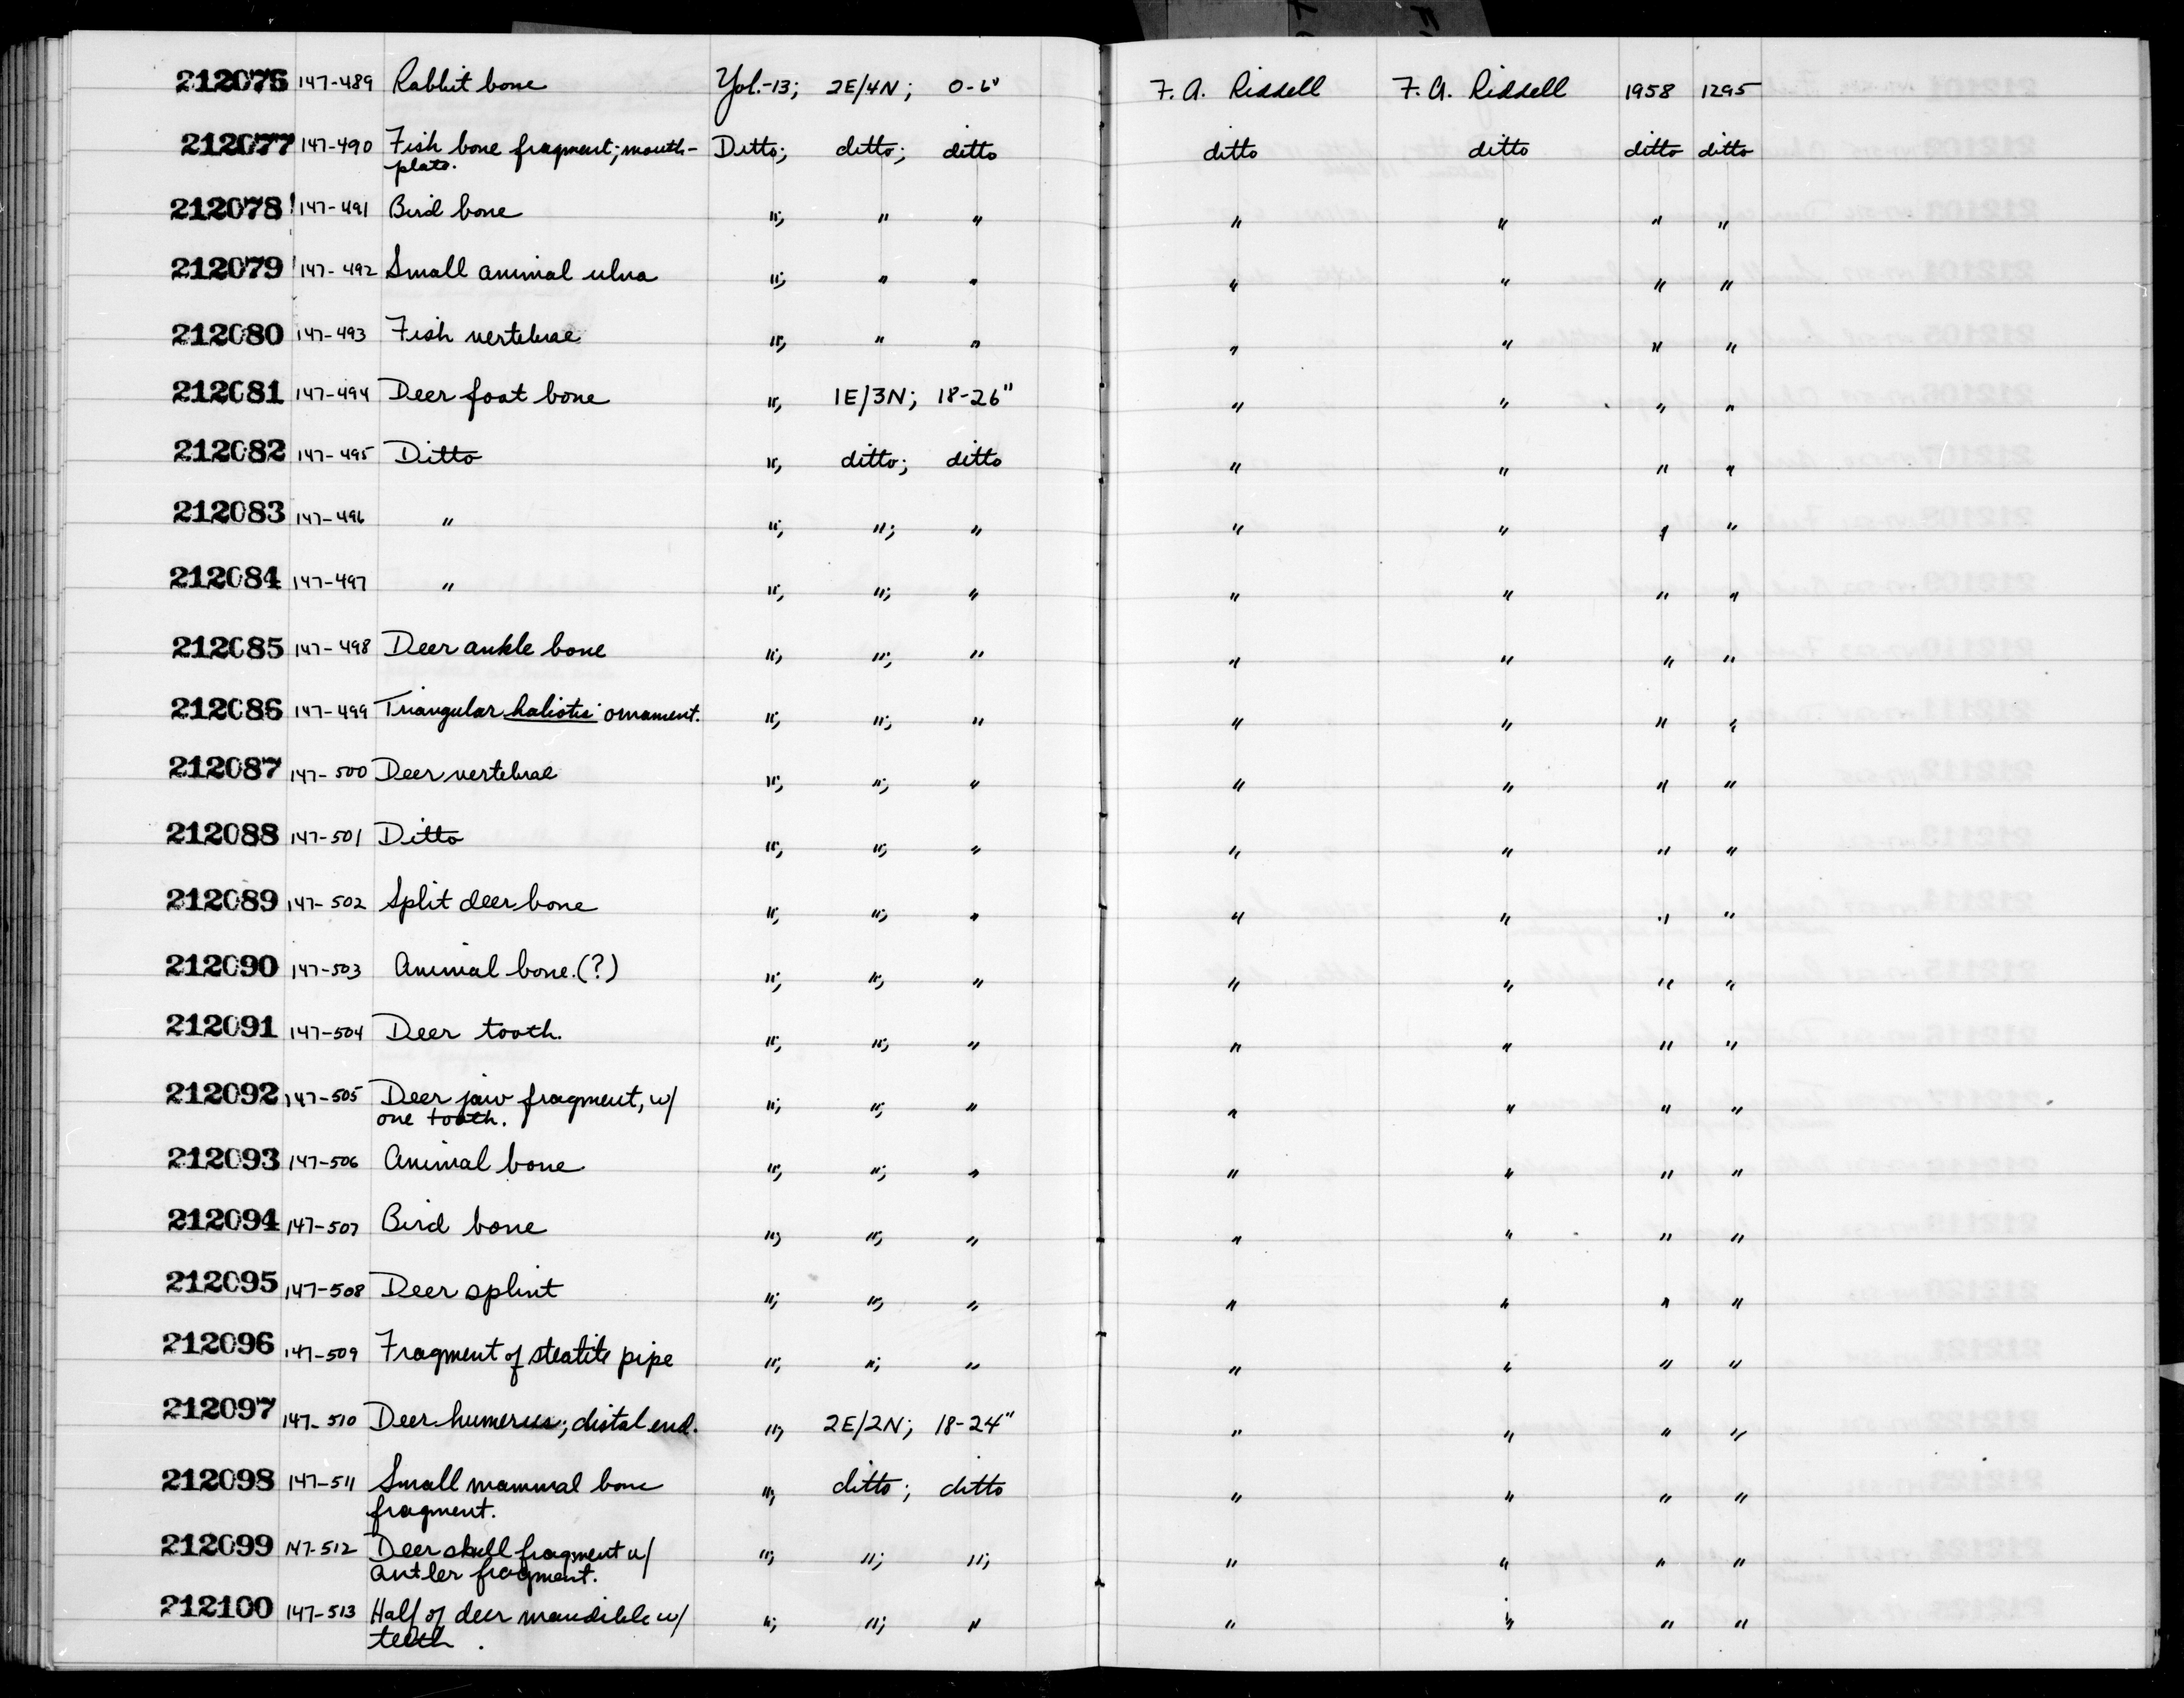 212076 147-489 Rabbit bone Yol.-13; 2E/4N; 0-6" F. A. Riddell F. A. Riddell 1958 1295
212077 147-490 Fish bone fragment; mouth- Ditto; ditto; ditto ditto ditto ditto ditto
plate.
212078 147-491 Bird bone "; " " " " " "
212079 147-492 Small animal ulna "; " " " " " "
212080 147-493 Fish vertebrae "; " " " " " "
212081 147-494 Deer foot bone "; 1E/3N; 18-26" " " " "
212082 147-495 Ditto "; ditto; ditto " " " "
212083 147-496 " "; "; " " " " "
212084 147-497 " "; "; " " " " "
212085 147-498 Deer ankle bone "; "; " " " " "
212086 147-499 Triangular haliotis ornament. "; "; " " " " "
212087 147-500 Deer vertebrae "; "; " " " " "
212088 147-501 Ditto "; "; " " " " "
212089 147-502 Split deer bone "; "; " " " " "
212090 147-503 Animal bone.(?) "; "; " " " " "
212091 147-504 Deer tooth. "; "; " " " " "
212092 147-505 Deer jaw fragment, w/ "; "; " " " " "
one tooth.
212093 147-506 Animal bone "; "; " " " " "
212094 147-507 Bird bone "; "; " " " " "
212095 147-508 Deer splint "; "; " " " " "
212096 147-509 Fragment of steatite pipe "; "; " " " " "
212097 147-510 Deer humerus; distal end. "; 2E/2N; 18-24" " " " "
212098 147-511 Small mammal bone "; ditto; ditto " " " "
fragment.
212099 147-512 Deer skull fragment w/ "; "; "; " " " "
antler fragment.
212100 147-513 Half of deer mandible w/ "; "; " " " " "
teeth.